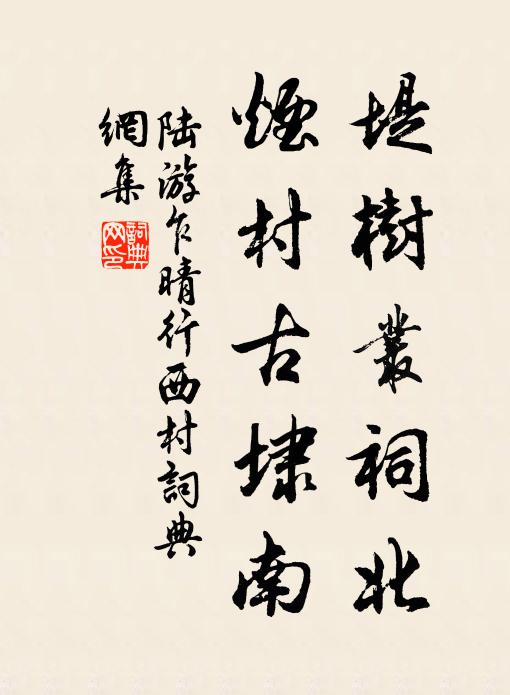 堤樹叢祠北
煙村古埭南
陆游乍晴行西村詞典
網集
詞典
网印